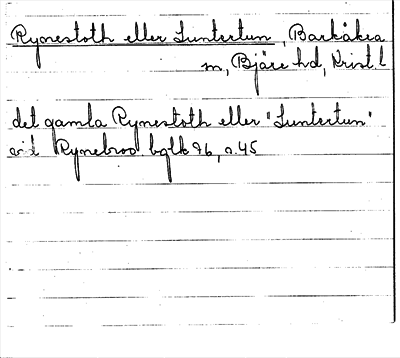 Rynestoth eller Luntertun, Barkåkra
sn, Bjäre hd, Krist. l
det gamla Rynestoth eller "Luntertun"
vid Rynebroo bglk 96, s. 45